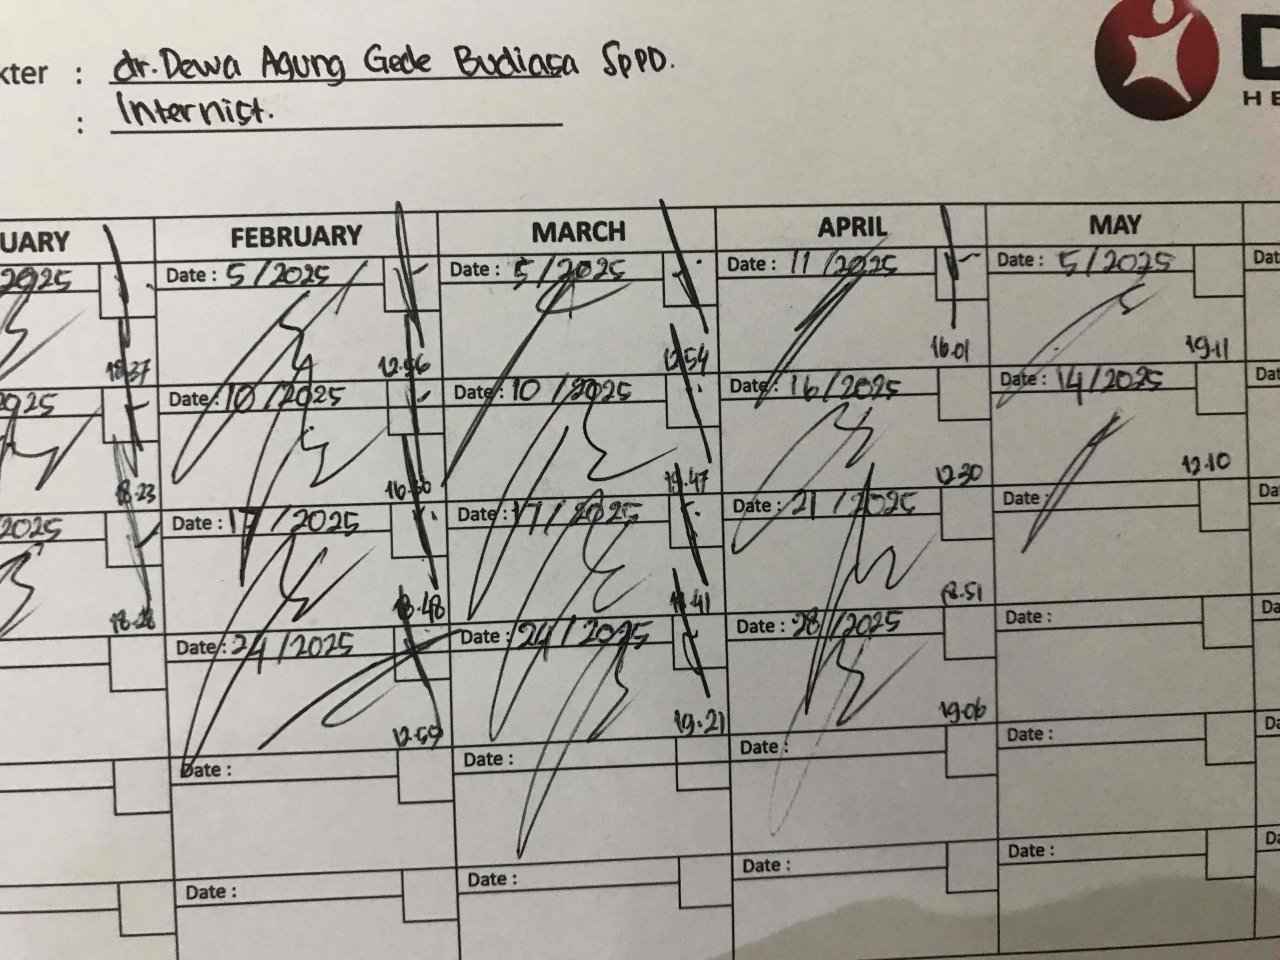 kter : dr. Dewa Agung Gede Budiasa SpPD.
: Internist.
D
HE
UARY FEBRUARY MARCH APRIL MAY
2025 Date : 5/2025 Date : 5/2025 Date : 11/2025 Date : 5/2025 Dat
18.37 12.56 12.54 16.01 19.11
2025 Date : 10/2025 Date : 10/2025 Date : 16/2025 Date : 14/2025 Dat
18.23 12.30 12.10
2025 Date : 17/2025 Date : 17/2025 Date : 21/2025 Date : Da
18.28 18.48 18.51
Date : 24/2025 Date : 24/2025 Date : 28/2025 Date : Da
12.59 19.21 19.06
Date : Date : Date : Date : Da
Date : Date : Date : Date : Da